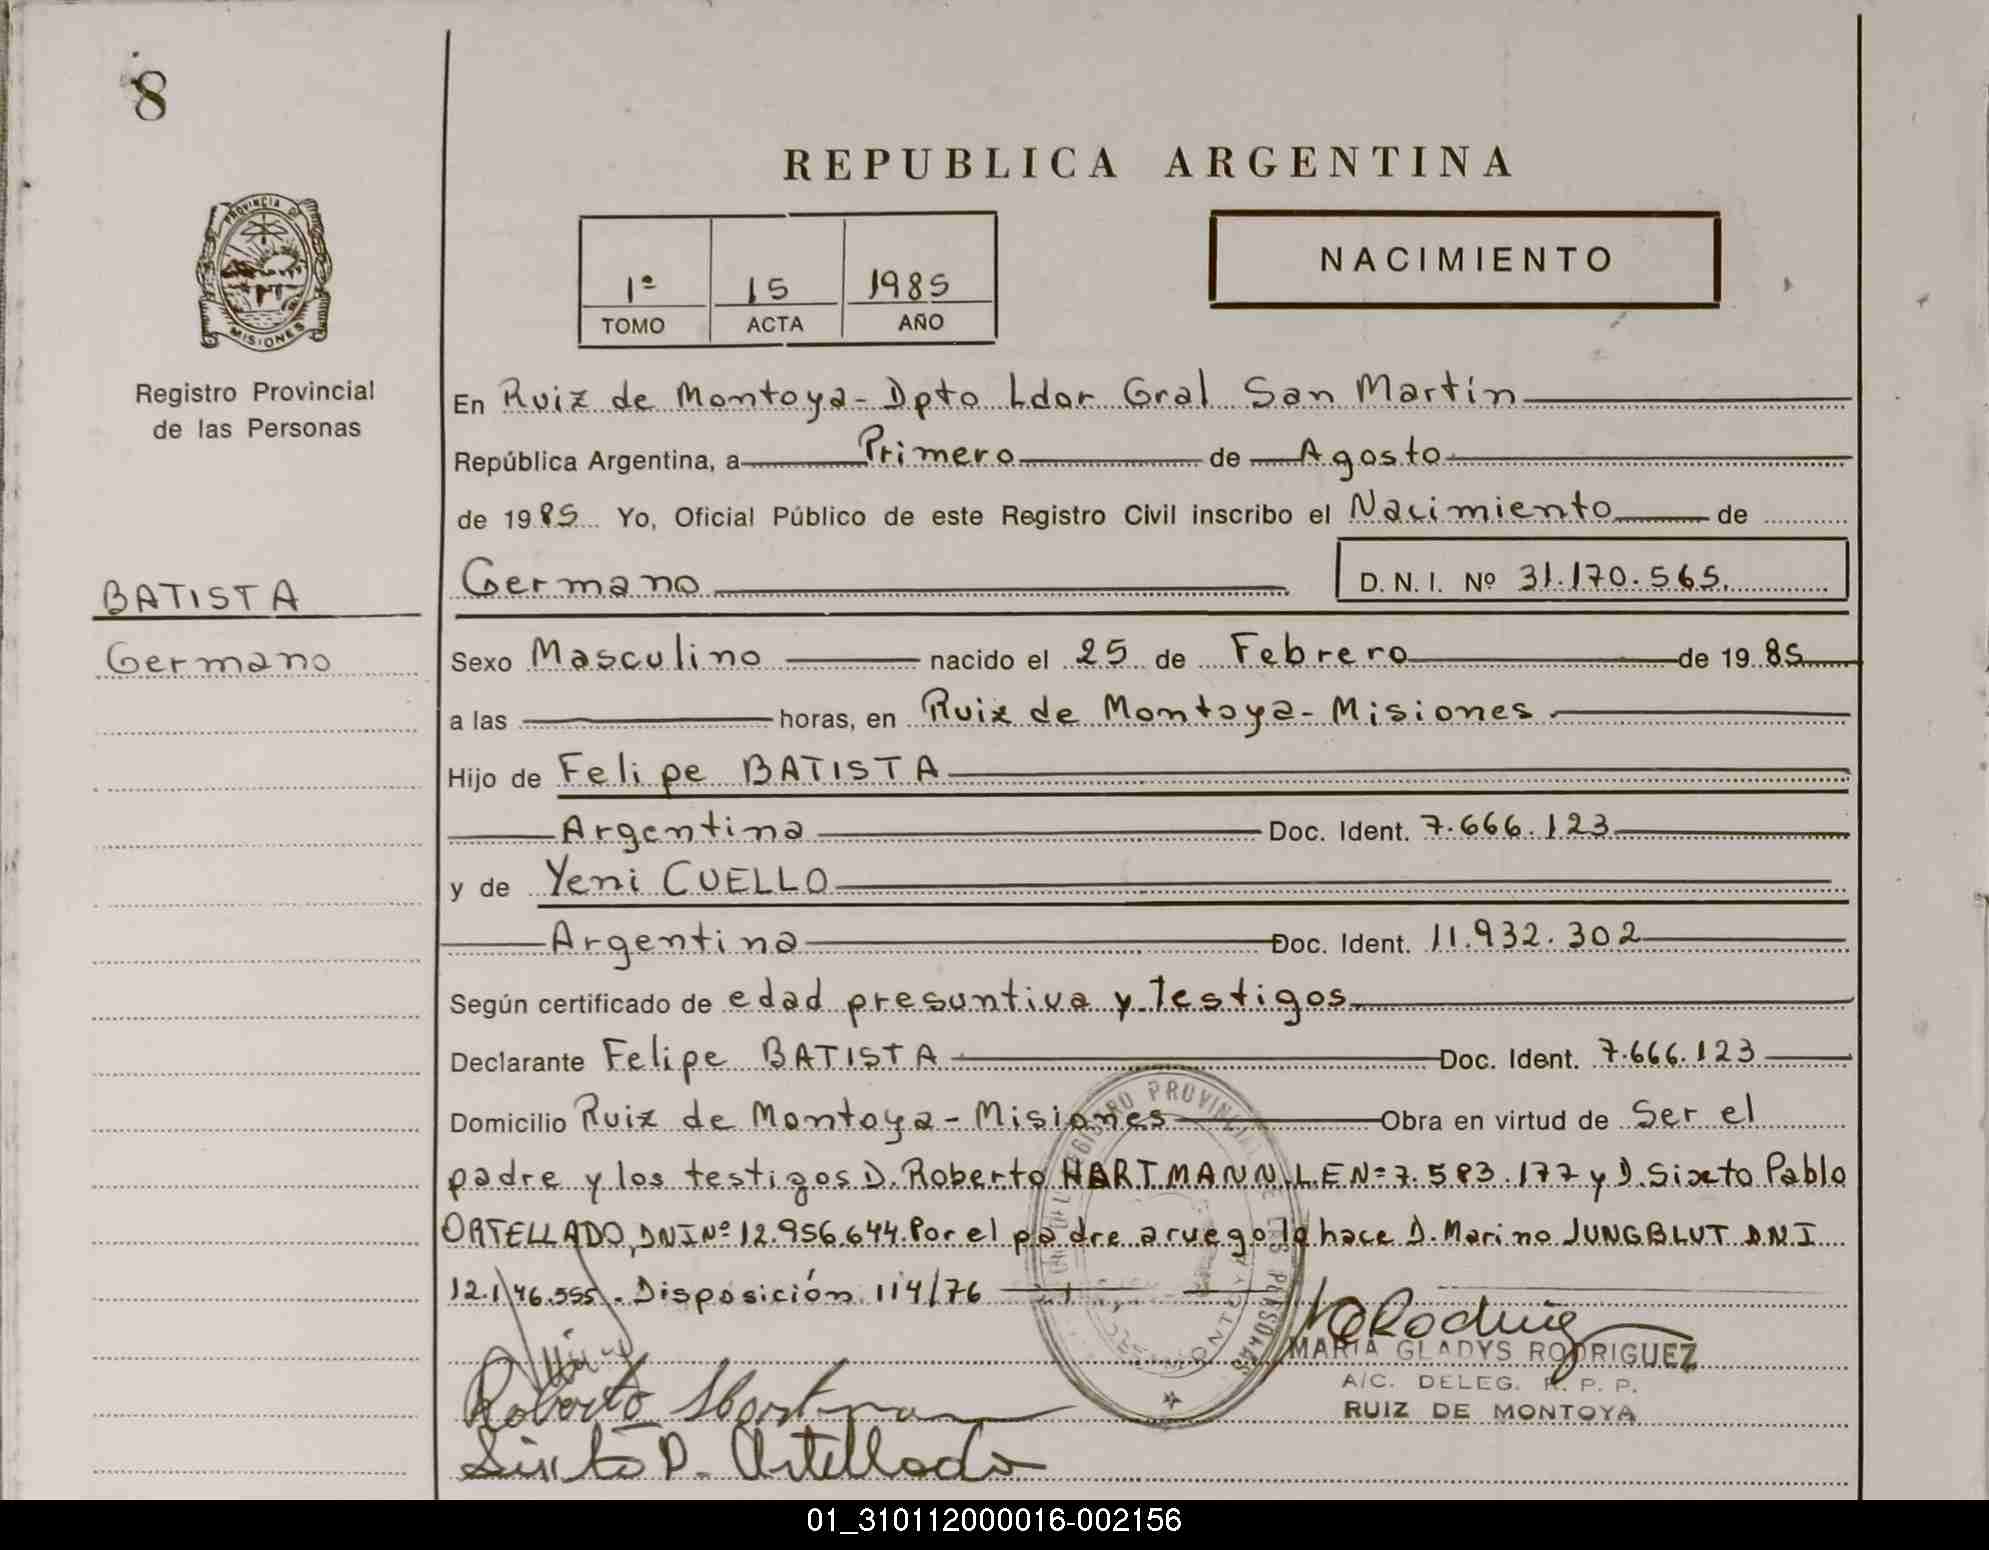 8
REPUBLICA ARGENTINA
PROVINCIA DE
MISIONES
1º 15 1985
TOMO ACTA AÑO
NACIMIENTO
Registro Provincial
de las Personas
En Ruiz de Montoya - Dpto Ldor Gral San Martín
República Argentina, a Primero de Agosto
de 1985 Yo, Oficial Público de este Registro Civil inscribo el Nacimiento de
BATISTA
Germano
Germano D.N.I. Nº 31.170.565
Sexo Masculino nacido el 25 de Febrero de 1985
a las horas, en Ruiz de Montoya - Misiones
Hijo de Felipe BATISTA
Argentina Doc. Ident. 7.666.123
y de Yeni CUELLO
Argentina Doc. Ident. 11.932.302
Según certificado de edad presuntiva y testigos
Declarante Felipe BATISTA Doc. Ident. 7.666.123
Domicilio Ruiz de Montoya - Misiones Obra en virtud de Ser el
padre y los testigos D. Roberto HARTMANN L.E Nº 7.583.177 y D. Sixto Pablo
ORTELLADO, DNI Nº 12.956.644. Por el padre a ruego lo hace D. Marino JUNGBLUT DNI
12.146.555. Disposición 114/76
REGISTRO PROVINCIAL DE LAS PERSONAS
MARIA GLADYS RODRIGUEZ
A/C. DELEG. R. P. P.
RUIZ DE MONTOYA
Roberto Hartmann
Sixto P. Ortellado
01_310112000016-002156